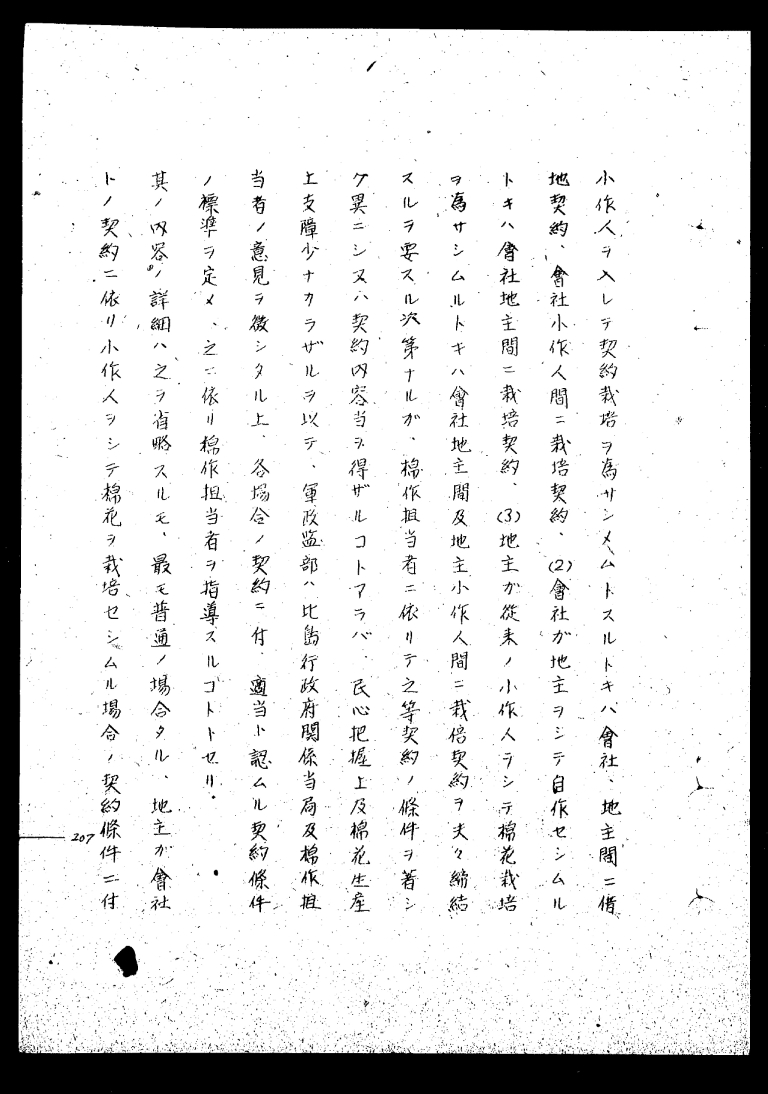 小作人ヲ入レテ契約栽培ヲ為サシメムトスルトキハ會社、地主間ニ借
地契約、會社小作人間ニ栽培契約、(2)會社ガ地主ヲシテ自作セシムル
トキハ會社地主間ニ栽培契約、(3)地主ガ從来ノ小作人ヲシテ棉花栽培
ヲ為サシムルトキハ會社地主間及地主小作人間ニ栽倍契約ヲ夫々締結
スルヲ要スル次第ナルガ、棉作担当者ニ依リテ之等契約ノ條件ヲ著シ
ク異ニシ又ハ契約内容当ヲ得ザルコトアラバ、民心把握上及棉花生産
上支障少ナカラザルヲ以テ、軍政監部ハ比島行政府関係当局及棉作担
当者ノ意見ヲ徴シタル上、各場合ノ契約ニ付、適当ト認ムル契約條件
ノ標準ヲ定メ、之ニ依リ棉作担当者ヲ指導スルコトトセリ。
其ノ内容ノ詳細ハ之ヲ省略スルモ、最モ普通ノ場合タル、地主ガ會社
トノ契約ニ依リ小作人ヲシテ棉花ヲ栽培セシムル場合ノ契約條件ニ付
207